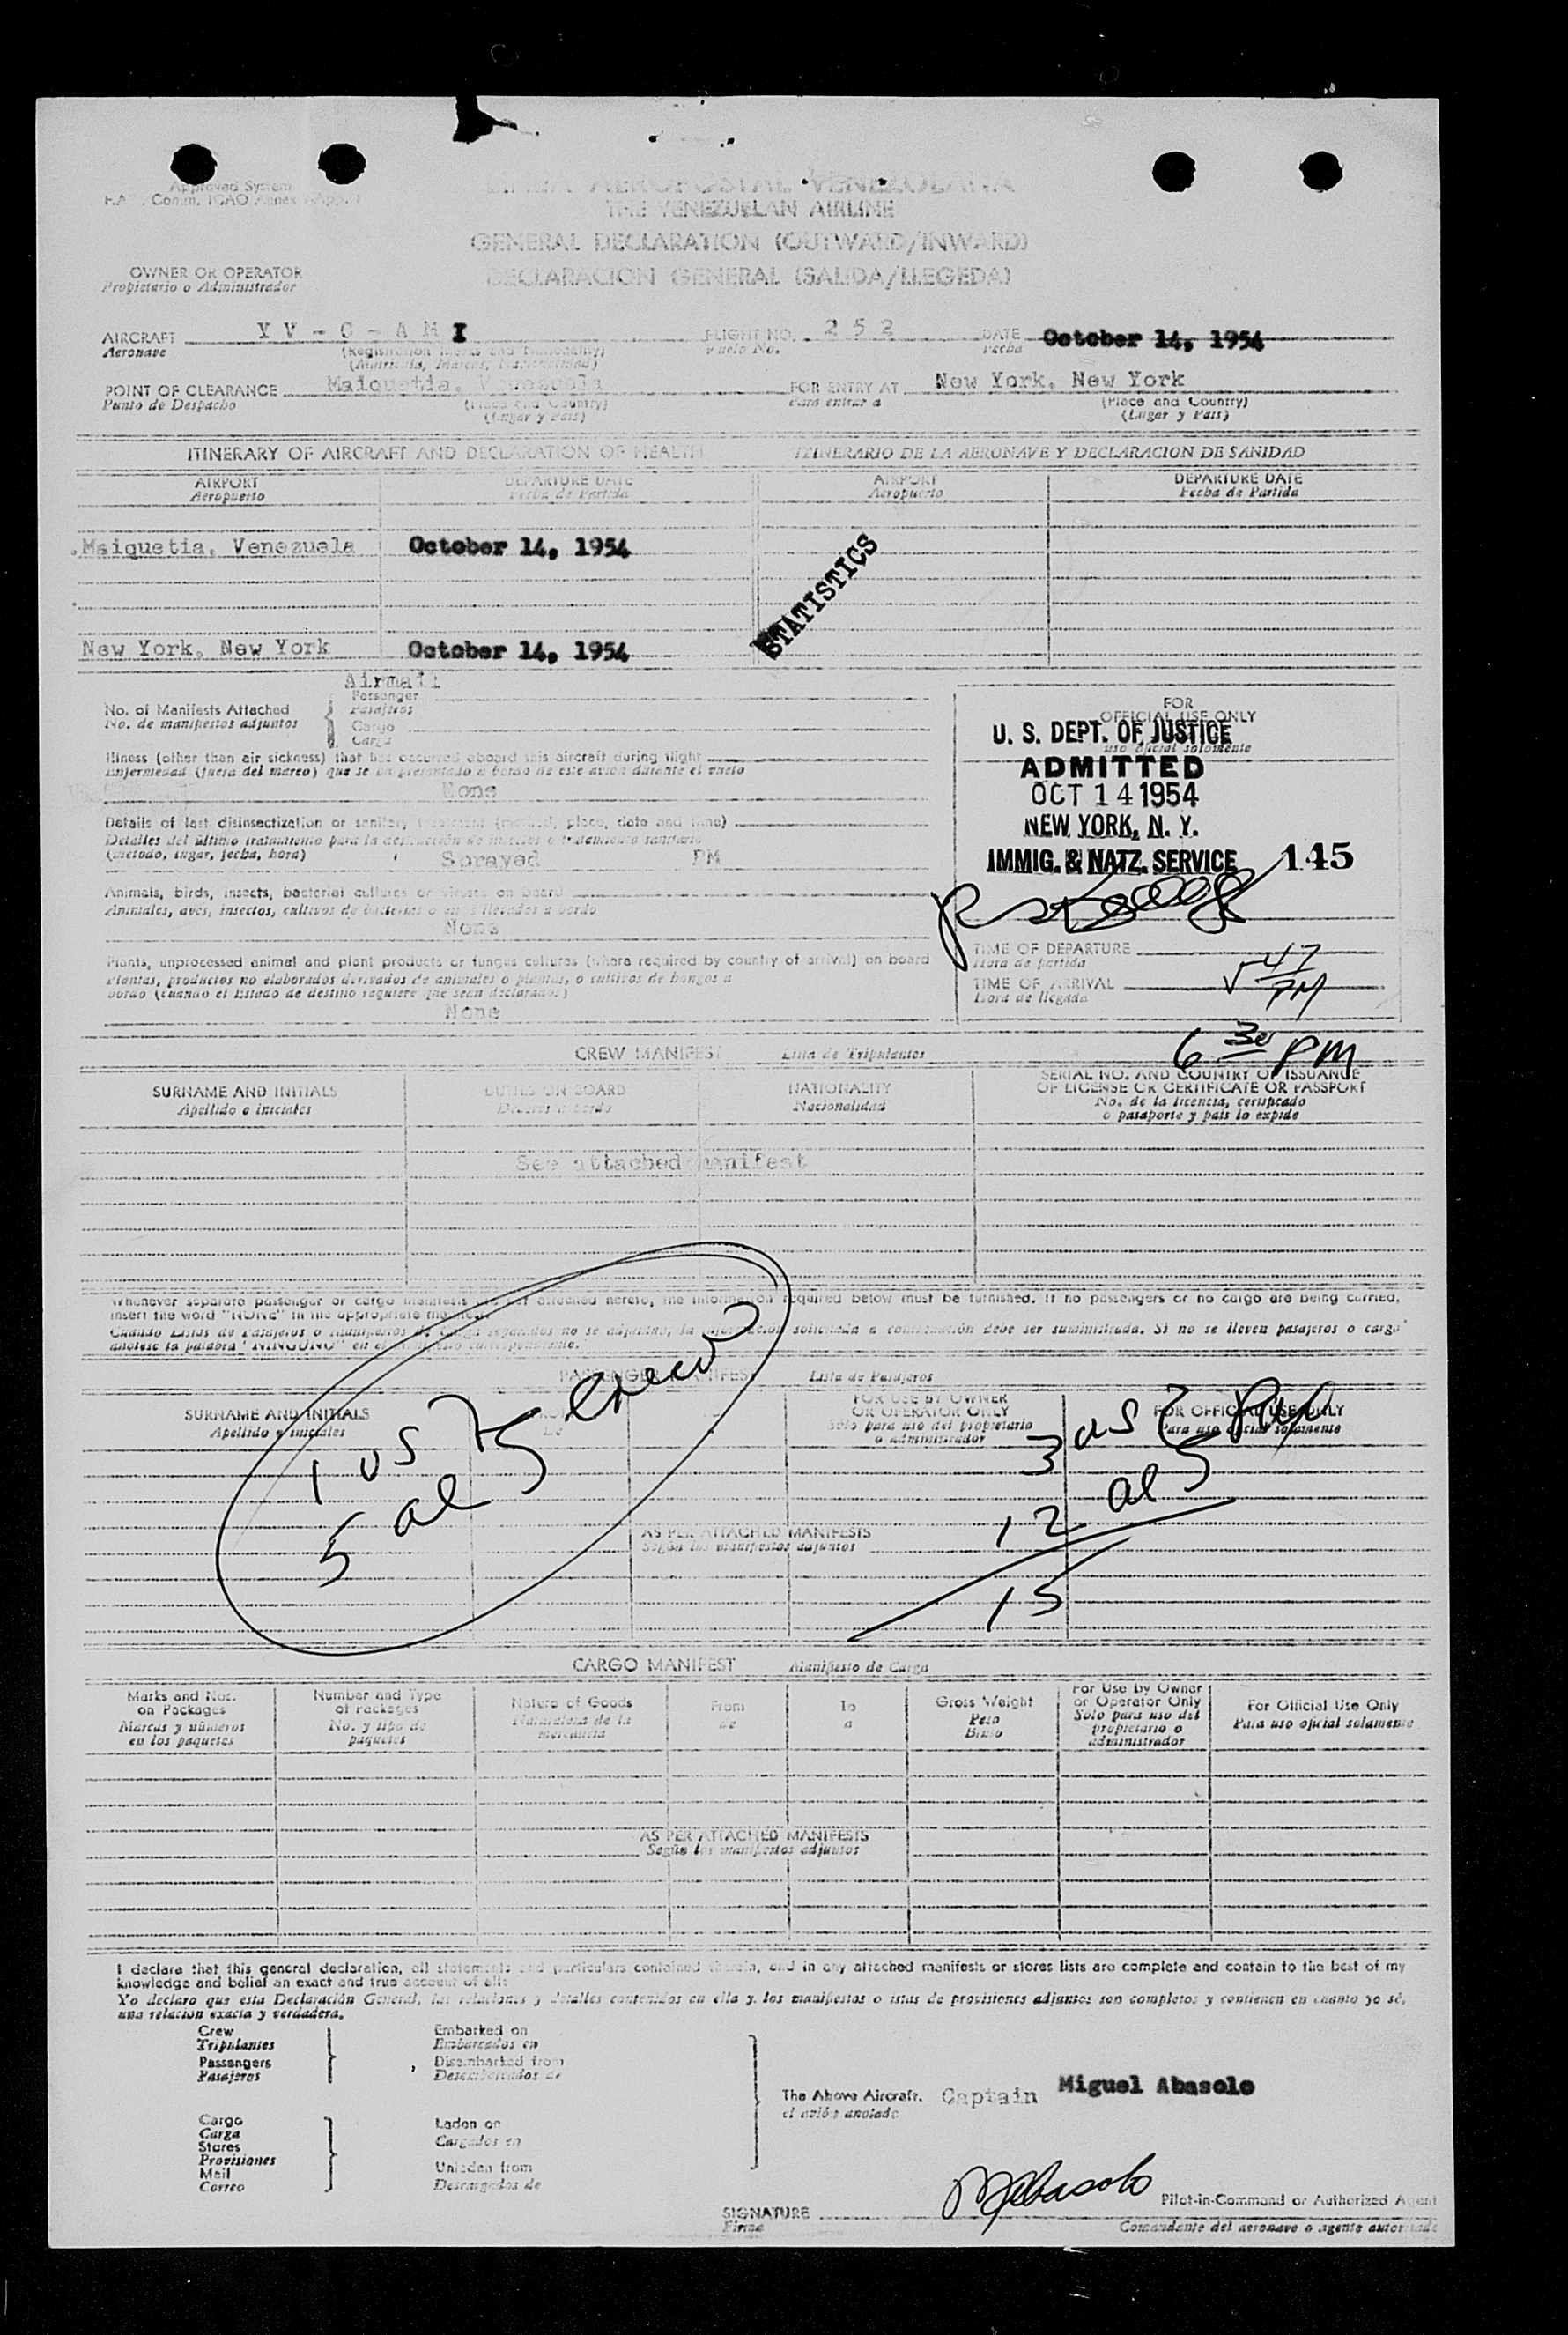 Approved System
LINEA AEROPOSTAL VENEZOLANA
THE VENEZUELAN AIRLINE
GENERAL DECLARATION (OUTWARD/INWARD)
DECLARACION GENERAL (SALIDA/LLEGEDA)
OWNER OR OPERATOR
Propietario o Administrador
AIRCRAFT Y V - C - A M I FLIGHT NO. 2 5 2 DATE October 14, 1954
Aeronave Vuelo No. Fecha
(Registration Marks and Nationality)
POINT OF CLEARANCE Maiquetia, Venezuela FOR ENTRY AT New York, New York
Punto de Despacho (Place and Country) Para entrar a (Place and Country)
(Lugar y Pais) (Lugar y Pais)
ITINERARY OF AIRCRAFT AND DECLARATION OF HEALTH ITINERARIO DE LA AERONAVE Y DECLARACION DE SANIDAD
AIRPORT DEPARTURE DATE AIRPORT DEPARTURE DATE
Aeropuerto Fecha de Partida Aeropuerto Fecha de Partida
Maiquetia, Venezuela October 14, 1954
STATISTICS
New York, New York October 14, 1954
Airmail
No. of Manifests Attached Passenger
No. de manifiestos adjuntos Pasajeros
Cargo
Carga
FOR
OFFICIAL USE ONLY
uso oficial solamente
U. S. DEPT. OF JUSTICE
ADMITTED
OCT 14 1954
NEW YORK, N. Y.
IMMIG. & NATZ. SERVICE 145
Illness (other than air sickness) that has occurred aboard this aircraft during flight
Enfermedad (fuera del mareo) que se ha presentado a bordo de este avion durante el vuelo
None
Details of last disinsectization or sanitary treatment (method, place, date and time)
Detalles del último tratamiento para la destrucción de insectos o tratamiento sanitario
(metodo, lugar, fecha, hora) Sprayed PM
Animals, birds, insects, bacterial cultures or viruses on board
Animales, aves, insectos, cultivos de bacterias o virus llevados a bordo
None
Plants, unprocessed animal and plant products or fungus cultures (where required by country of arrival) on board
Plantas, productos no elaborados derivados de animales o plantas, o cultivos de hongos a
bordo (cuando el Estado de destino requiere que sean declarados)
None
TIME OF DEPARTURE
Hora de partida
TIME OF ARRIVAL 5 47 PM
Hora de llegada
6 30 PM
CREW MANIFEST Lista de Tripulantes
SURNAME AND INITIALS DUTIES ON BOARD NATIONALITY SERIAL NO. AND COUNTRY OF ISSUANCE
OF LICENSE OR CERTIFICATE OR PASSPORT
Apellido e iniciales Deberes a bordo Nacionalidad No. de la licencia, certificado
o pasaporte y país lo expide
See attached manifest
Whenever separate passenger or cargo manifests are not attached hereto, the information required below must be furnished. If no passengers or no cargo are being carried,
insert the word "NONE" in the appropriate manifest.
Cuando Listas de Pasajeros o manifiestos de carga separados no se adjuntan, la información solicitada a continuación debe ser suministrada. Si no se lleven pasajeros o carga
anótese la palabra "NINGUNO" en el manifiesto correspondiente.
PASSENGER MANIFEST Lista de Pasajeros
SURNAME AND INITIALS FOR USE BY OWNER
OR OPERATOR ONLY FOR OFFICIAL USE ONLY
Apellido e iniciales Sólo para uso del propietario
o administrador Para uso oficial solamente
1 US crew
5 al
3 US
12 al
15
AS PER ATTACHED MANIFESTS
Según los manifiestos adjuntos
CARGO MANIFEST Manifiesto de Carga
Marks and Nos.
on Packages
Marcas y números
en los paquetes
Number and Type
of Packages
No. y tipo de
paquetes
Nature of Goods
Naturaleza de la
mercancia
From
de
To
a
Gross Weight
Peso
Bruto
For Use by Owner
or Operator Only
Sólo para uso del
propietario o
administrador
For Official Use Only
Para uso oficial solamente
AS PER ATTACHED MANIFESTS
Según los manifiestos adjuntos
I declare that this general declaration, all statements and particulars contained therein, and in any attached manifests or stores lists are complete and contain to the best of my
knowledge and belief an exact and true account of all:
Yo declaro que esta Declaración General, las relaciones y detalles contenidos en ella y los manifiestos o listas de provisiones adjuntos son completos y contienen en cuanto yo sé,
una relacion exacta y verdadera.
Crew Embarked on
Tripulantes Embarcados en
Passengers Disembarked from
Pasajeros Desembarcados de
The Above Aircraft. Captain Miguel Abasolo
el avión anotado
Cargo Laden on
Carga Cargados en
Stores
Provisiones
Mail Unladen from
Correo Descargados de
MAbasolo
SIGNATURE Pilot-in-Command or Authorized Agent
Firma Comandante del aeronave o agente autorizado